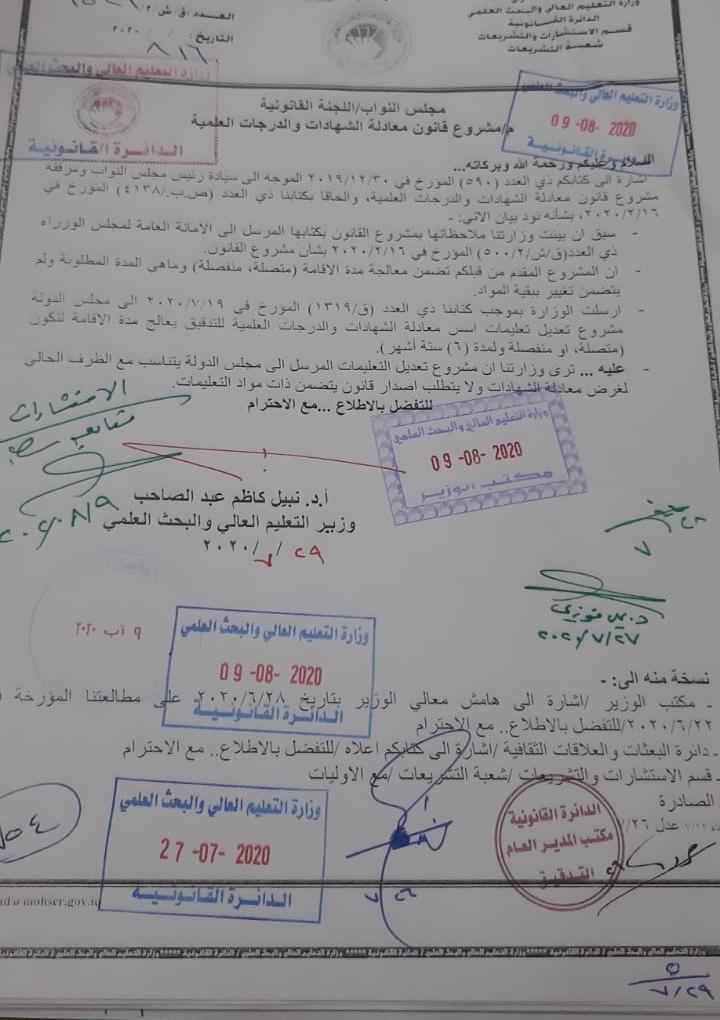 وزارة التعليم العالي والبحث العلمي
الدائرة القانونية
قسم الاستشارات والتشريعات
شعبة التشريعات
العدد: ق/ش/٢/
التاريخ: ٢٠٢٠/
٨/٦
وزارة التعليم العالي والبحث العلمي
الدائرة القانونية
وزارة التعليم العالي والبحث العلمي
09-08-2020
القانونية
مجلس النواب/اللجنة القانونية
م/مشروع قانون معادلة الشهادات والدرجات العلمية
السلام عليكم ورحمة الله وبركاته...
اشارة الى كتابكم ذي العدد (٥٩٠) المؤرخ في ٢٠١٩/١٢/٣٠ الموجه الى سيادة رئيس مجلس النواب ومرفقة
مشروع قانون معادلة الشهادات والدرجات العلمية، والحاقا بكتابنا ذي العدد (ص.ب./٤١٣٨) المؤرخ في
٢٠٢٠/٢/١٦، بشأنه نود بيان الاتي:-
- سبق ان بينت وزارتنا ملاحظاتها بمشروع القانون بكتابها المرسل الى الامانة العامة لمجلس الوزراء
ذي العدد(ق/ش/٥٠٠/٢) المؤرخ في ٢٠٢٠/٢/١٦ بشان مشروع القانون.
- ان المشروع المقدم من قبلكم تضمن معالجة مدة الاقامة (متصلة، منفصلة) وماهي المدة المطلوبة ولم
يتضمن تغيير ببقية المواد.
- ارسلت الوزارة بموجب كتابنا ذي العدد (ق/١٣١٩) المؤرخ في ٢٠٢٠/٧/١٩ الى مجلس الدولة
مشروع تعديل تعليمات اسس معادلة الشهادات والدرجات العلمية للتدقيق يعالج مدة الاقامة لتكون
(متصلة، او منفصلة ولمدة (٦) ستة أشهر).
- عليه ... ترى وزارتنا ان مشروع تعديل التعليمات المرسل الى مجلس الدولة يتناسب مع الظرف الحالي
لغرض معادلة الشهادات ولا يتطلب اصدار قانون يتضمن ذات مواد التعليمات.
للتفضل بالاطلاع ...مع الاحترام
الاستشارات
وزارة التعليم العالي والبحث العلمي
09-08-2020
مكتب الوزير
أ.د. نبيل كاظم عبد الصاحب
وزير التعليم العالي والبحث العلمي
٢٩/٧/٢٠٢٠
٢٠٢٠/٧/٢٧
٩ آب ٢٠٢٠
وزارة التعليم العالي والبحث العلمي
09-08-2020
الدائرة القانونية
نسخة منه الى:-
- مكتب الوزير /اشارة الى هامش معالي الوزير بتاريخ ٢٠٢٠/٦/٢٨ على مطالعتنا المؤرخة
٢٠٢٠/٦/٢٢/للتفضل بالاطلاع.. مع الاحترام
- دائرة البعثات والعلاقات الثقافية /اشارة الى كتابكم اعلاه /للتفضل بالاطلاع.. مع الاحترام
- قسم الاستشارات والتشريعات /شعبة التشريعات /مع الاوليات
- الصادرة
عدل ٧/٢٦
وزارة التعليم العالي والبحث العلمي
27-07-2020
الدائرة القانونية
الدائرة القانونية
مكتب المدير العام
التدقيق
٥
٧/٢٩